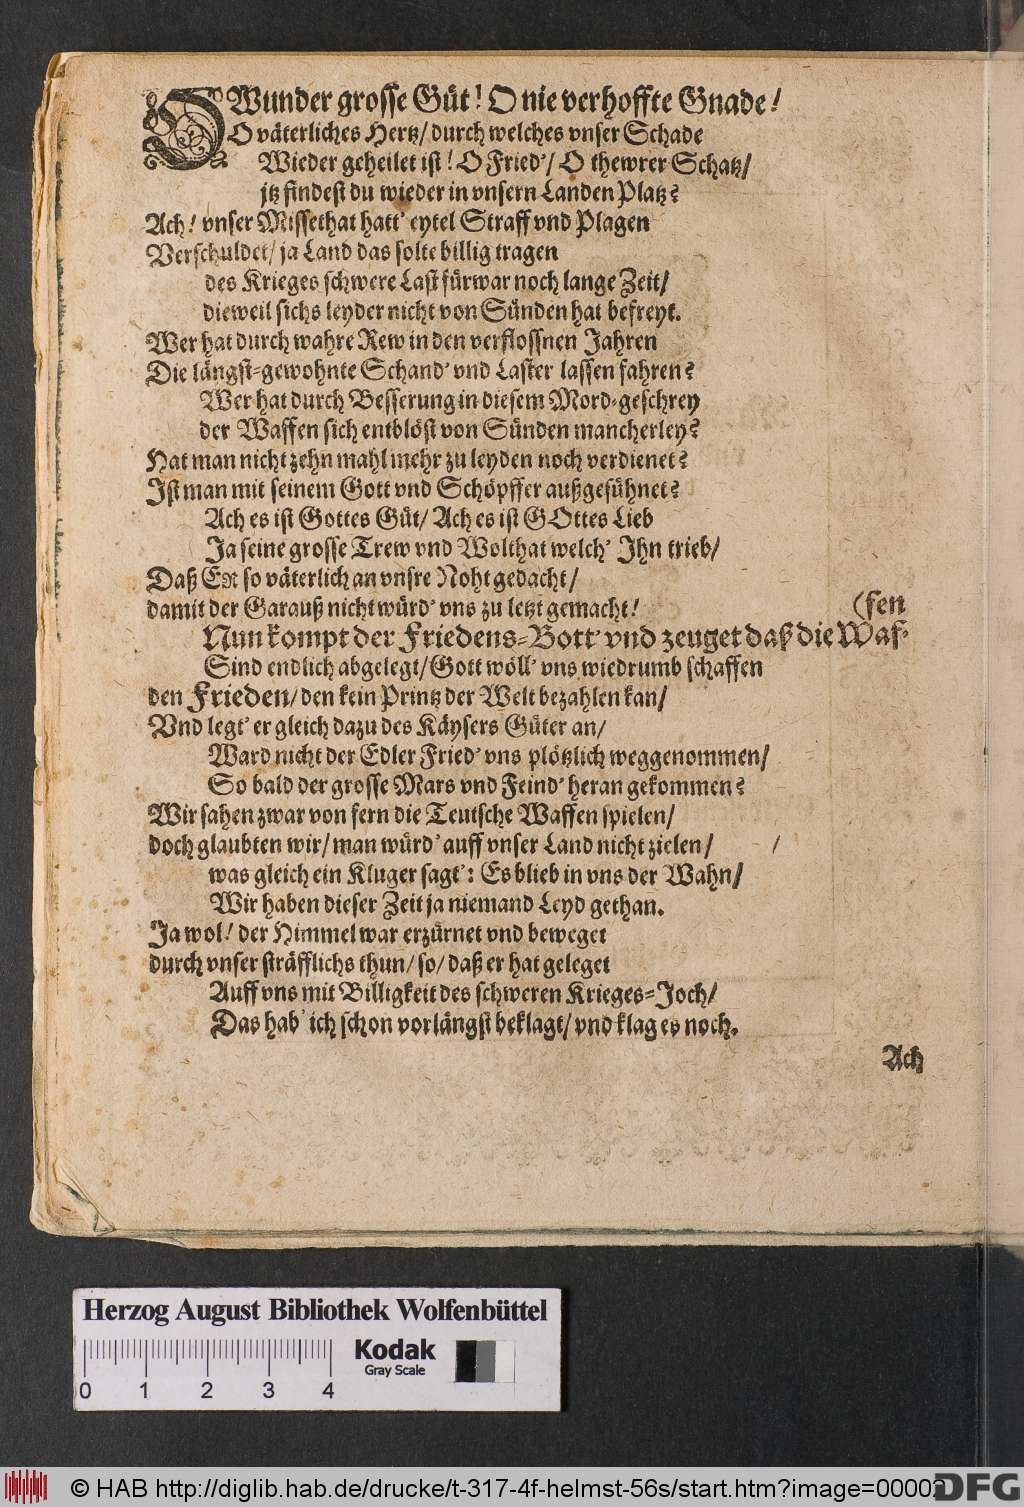 O Wunder grosse Güt! O nie verhoffte Gnade!
O väterliches Hertz/ durch welches vnser Schade
Wieder geheilet ist! O Fried'/ O thewrer Schatz/
jtz findest du wieder in vnsern Landen Platz?
Ach! vnser Missethat hatt' eytel Straff vnd Plagen
Verschuldet/ ja Land das solte billig tragen
des Krieges schwere Last fürwar noch lange Zeit/
dieweil sichs leyder nicht von Sünden hat befreyt.
Wer hat durch wahre Rew in den verflossnen Jahren
Die längst-gewohnte Schand' vnd Laster lassen fahren?
Wer hat durch Besserung in diesem Mord-geschrey
der Waffen sich entblöst von Sünden mancherley?
Hat man nicht zehn mahl mehr zu leyden noch verdienet?
Ist man mit seinem Gott vnd Schöpffer außgesühnet?
Ach es ist Gottes Güt/ Ach es ist GOttes Lieb
Ja seine grosse Trew vnd Wolthat welch' Ihn trieb/
Daß ER so väterlich an vnsre Noht gedacht/
damit der Garauß nicht würd' vns zu letzt gemacht!
(fen
Nun kompt der Friedens-Bott' vnd zeuget daß die Waf-
Sind endlich abgelegt/ Gott wöll' vns wiedrumb schaffen
den Frieden/ den kein Printz der Welt bezahlen kan/
Vnd legt' er gleich dazu des Käysers Güter an/
Ward nicht der Edler Fried' vns plötzlich weggenommen/
So bald der grosse Mars vnd Feind' heran gekommen?
Wir sahen zwar von fern die Teutsche Waffen spielen/
doch glaubten wir/ man würd' auff vnser Land nicht zielen/ /
was gleich ein Kluger sagt': Es blieb in vns der Wahn/
Wir haben dieser Zeit ja niemand Leyd gethan.
Ja wol! der Himmel war erzürnet vnd beweget
durch vnser sträfflichs thun/ so/ daß er hat geleget
Auff vns mit Billigkeit des schweren Krieges-Joch/
Das hab' ich schon vorlängst beklagt/ vnd klag es noch.
Ach
Herzog August Bibliothek Wolfenbüttel
Kodak
Gray Scale
0 1 2 3 4
© HAB http://diglib.hab.de/drucke/t-317-4f-helmst-56s/start.htm?image=00002
DFG